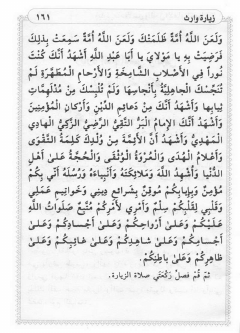 زيارة وارث ١٦١
وَلَعَنَ اللَّهُ أُمَّةً ظَلَمَتْكَ وَلَعَنَ اللَّهُ أُمَّةً سَمِعَتْ بِذٰلِكَ
فَرَضِيَتْ بِهِ يا مَوْلايَ يا أَبا عَبْدِ اللَّهِ أَشْهَدُ أَنَّكَ كُنْتَ
نُوراً فِي الأَصْلابِ الشَّامِخَةِ وَالأَرْحامِ المُطَهَّرَةِ لَمْ
تُنَجِّسْكَ الْجاهِلِيَّةُ بِأَنْجاسِها وَلَمْ تُلْبِسْكَ مِنْ مُدْلَهِمَّاتِ
ثِيابِها وَأَشْهَدُ أَنَّكَ مِنْ دَعائِمِ الدِّينِ وَأَرْكانِ المُؤْمِنِينَ
وَأَشْهَدُ أَنَّكَ الإِمامُ الْبَرُّ التَّقِيُّ الرَّضِيُّ الزَّكِيُّ الْهادِي
الْمَهْدِيُّ وَأَشْهَدُ أَنَّ الأَئِمَّةَ مِنْ وُلْدِكَ كَلِمَةُ التَّقْوَى
وَأَعْلامُ الْهُدَى وَالْعُرْوَةُ الْوُثْقَى وَالْحُجَّةُ عَلَى أَهْلِ
الدُّنْيا وَأُشْهِدُ اللَّهَ وَمَلائِكَتَهُ وَأَنْبِياءَهُ وَرُسُلَهُ أَنِّي بِكُمْ
مُؤْمِنٌ وَبِإِيابِكُمْ مُوقِنٌ بِشَرائِعِ دِينِي وَخَواتِيمِ عَمَلِي
وَقَلْبِي لِقَلْبِكُمْ سِلْمٌ وَأَمْرِي لأَمْرِكُمْ مُتَّبِعٌ صَلَواتُ اللَّهِ
عَلَيْكُمْ وَعَلَى أَرْواحِكُمْ وَعَلَى أَجْسادِكُمْ وَعَلَى
أَجْسامِكُمْ وَعَلَى شاهِدِكُمْ وَعَلَى غائِبِكُمْ وَعَلَى
ظاهِرِكُمْ وَعَلَى باطِنِكُمْ.
ثم قم فصل ركعتي صلاة الزيارة.